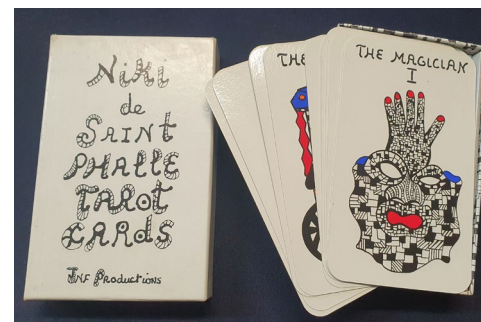 Niki
de
SAiNT
PHALLE
TAROT
CARdS
JNF PRoductioNS
THE
THE MAGICIAN
I